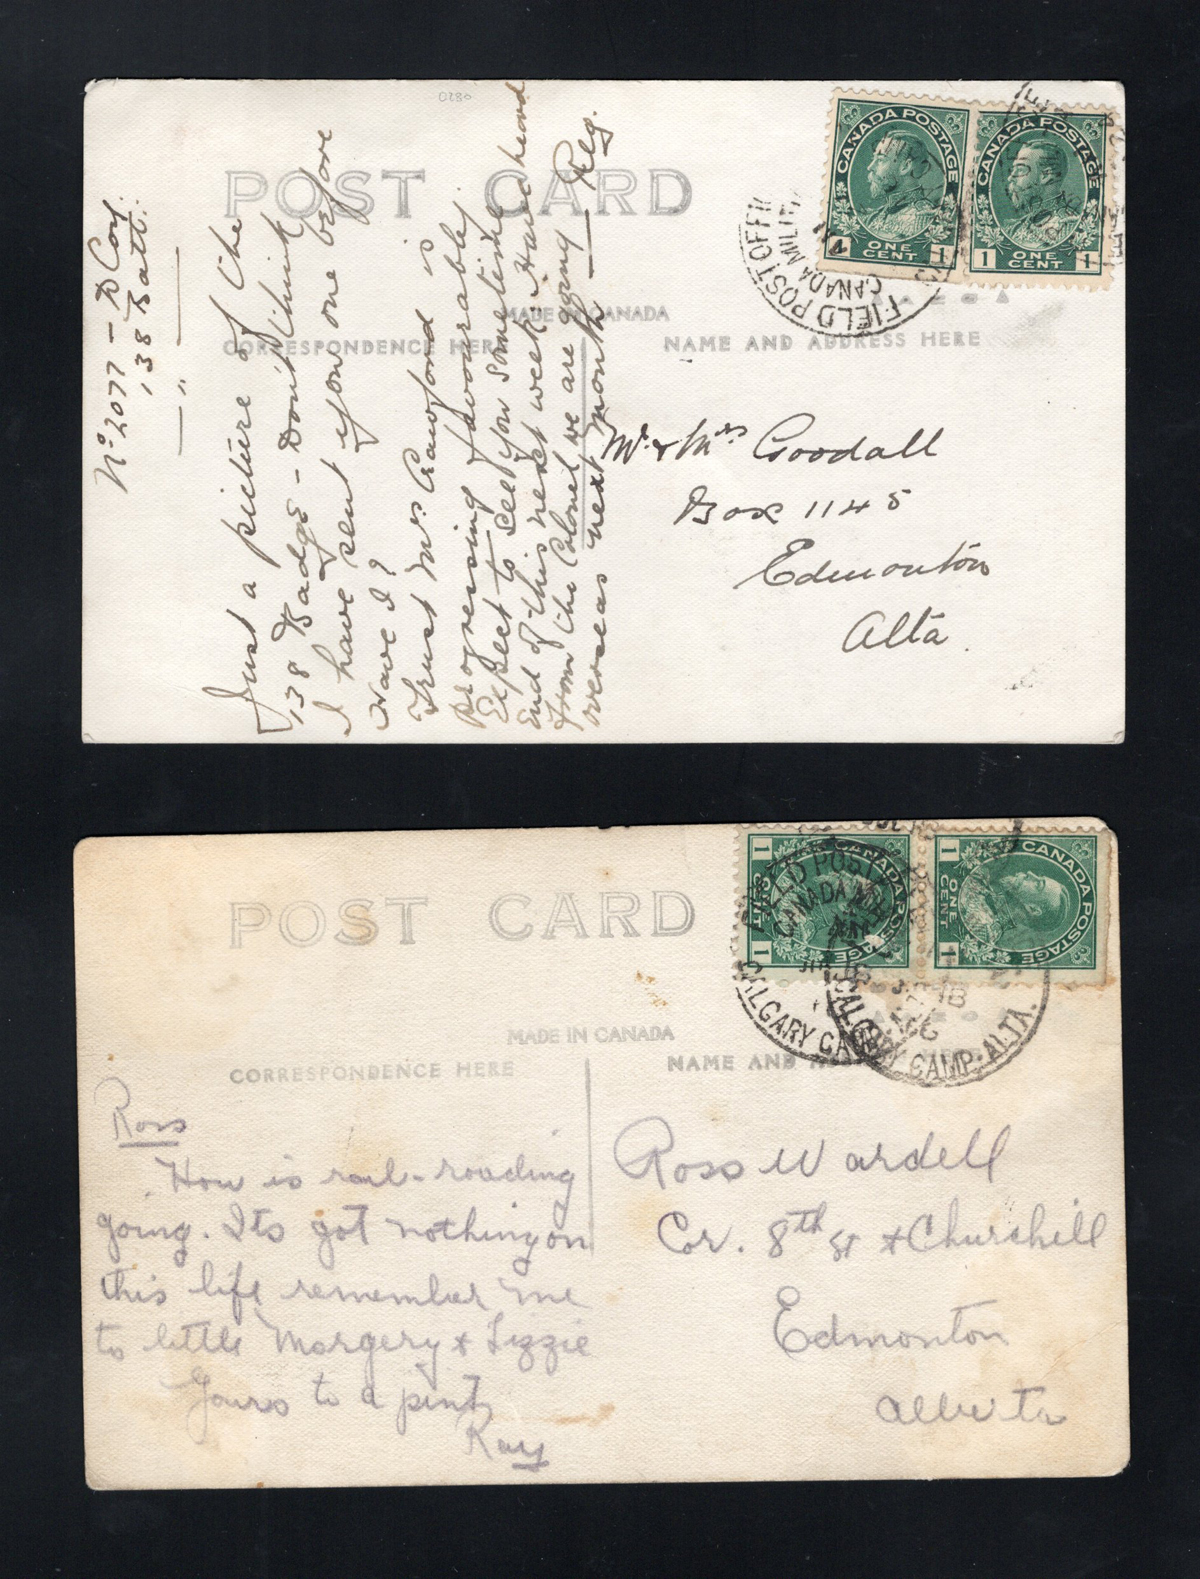 0280
POST CARD
MADE IN CANADA
CORRESPONDENCE HERE
NAME AND ADDRESS HERE
CANADA POSTAGE
1 ONE CENT 1
CANADA POSTAGE
1 ONE CENT 1
FIELD POST OFFI
CANADA MILITI
No 2077 - D Coy.
138 Batt.
— " —
Just a picture of the
138 Badge - Don't think
I have sent you one before
have I?
Trust Mrs Crawford is
progressing favourably
Expect to see you sometime
end of this next week. Have heard
from the Colonel we are going
overseas next month — Reg.
Mr & Mrs Goodall
Box 1145
Edmonton
Alta.
POST CARD
MADE IN CANADA
CORRESPONDENCE HERE
NAME AND A
CANADA POSTAGE
1 ONE CENT 1
CANADA POSTAGE
1 ONE CENT 1
FIELD POST
CANADA MILI
CALGARY CA
CALGARY CAMP. ALTA.
Ross
How is rail-roading
going. Its got nothing on
this life remember me
to little Margery & Lizzie
Yours to a pint
Ray
Ross Wardell
Cor. 8th st & Churchill
Edmonton
Alberta